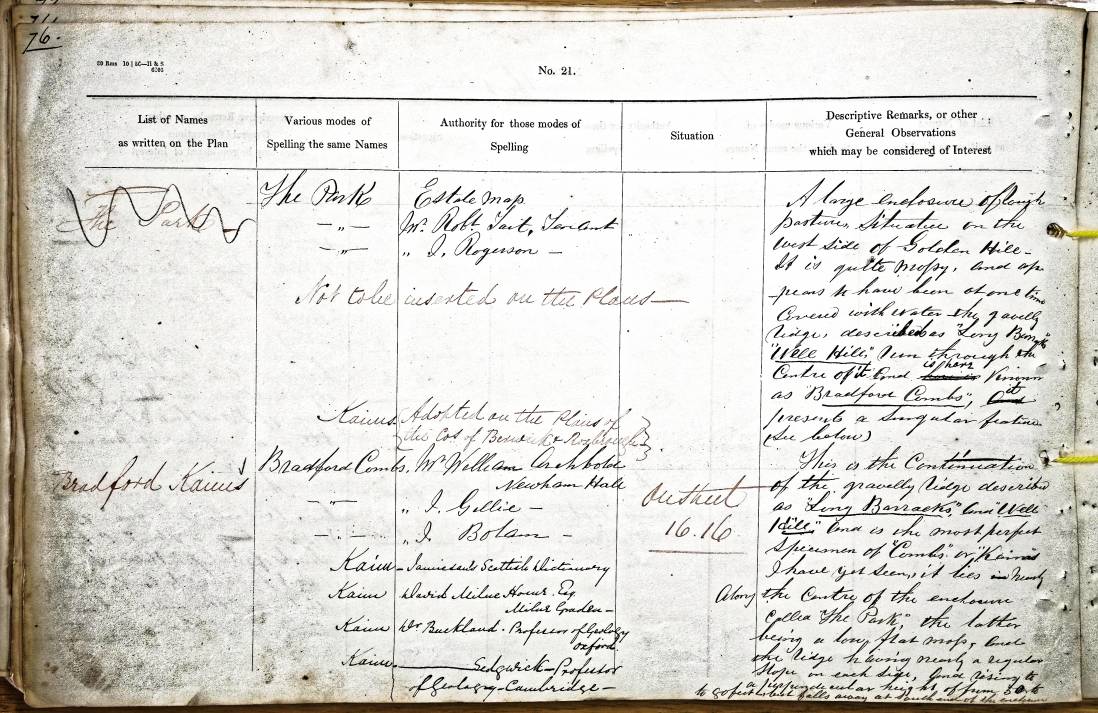 76.
No. 21.
List of Names
as written on the Plan
Various modes of
Spelling the same Names
Authority for those modes of
Spelling
Situation
Descriptive Remarks, or other
General Observations
which may be considered of Interest
The Park
The Park
Estate Map
Mr. Robt. Tait, Tenant
„ J. Rogerson —
Not to be inserted on the Plans —
A large enclosure of rough
pasture, situate on the
west side of Golden Hill —
It is quite mossy, and ap
pears to have been at one time
covered with water the gravelly
ridge, described as "Long Barracks"
"Well Hill," run through the
Centre of it and is here known
as "Bradford Combs", it
presents a singular feature
(see below)
Kaims
Adopted on the Plans of
the Cos of Berwick & Roxburgh
Bradford Kaims
Bradford Combs,
Mr William Archbold
Newham Hall
„ J. Gillie —
„ J. Bolam —
On sheet
16.16
Kaim — Jamieson's Scottish Dictionary
Kaim David Milne Home Esq
Milne Graden —
Kaim Dr Buckland. Professor of Geology
Oxford.
Kaim. Sedgwick — Professor
of Geology — Cambridge —
This is the Continuation
of the gravelly ridge described
as "Long Barracks," and "Well
Hill," and is the most perfect
specimen of "Combs" or Kaims
I have yet seen, it lies nearly
Along the Centre of the enclosure
called "The Park", the latter
being a low, flat moss, and
the ridge having nearly a regular
slope on each side, and rising to
a perpendicular height of from 50 to
to 60 feet but falls away at south end of the enclosure